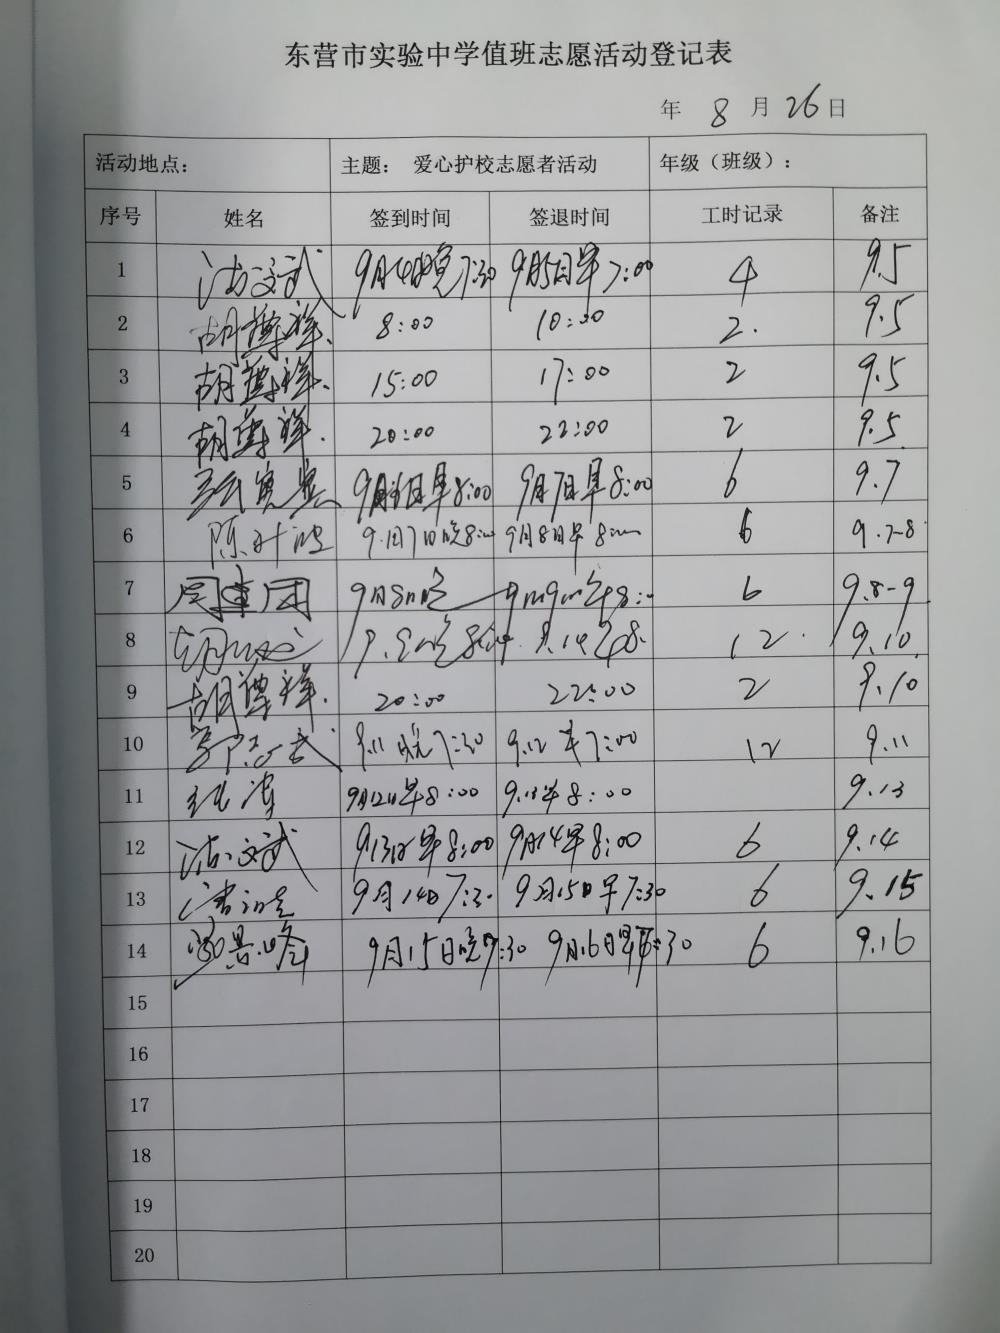 东营市实验中学值班志愿活动登记表
年 8 月 26 日
活动地点: 主题: 爱心护校志愿者活动 年级（班级）:
序号 姓名 签到时间 签退时间 工时记录 备注
1 文武 9月4日晚7:30 9月5日早7:00 4 9.5
2 胡尊祥. 8:00 10:00 2. 9.5
3 胡尊祥. 15:00 17:00 2 9.5
4 胡尊祥. 20:00 22:00 2 9.5
5 早8:00 9月7日早8:00 6 9.7
6 陈 9.月7日晚8: 9月8日早8: 6 9.7-8
7 9月8日晚 8: 6 9.8-9
8 12. 9.10
9 胡尊祥. 20:00 22:00 2 9.10
10 武 9.11晚7:30 9.12早7:00 12 9.11
11 9月12日早8:00 9.13早8:00 9.13
12 文武 9月13日早8:00 9月14早8:00 6 9.14
13 9月14日7:30 9月15日早7:30 6 9.15
14 景峰 9月15日晚7:30 9月16日早 :30 6 9.16
15
16
17
18
19
20